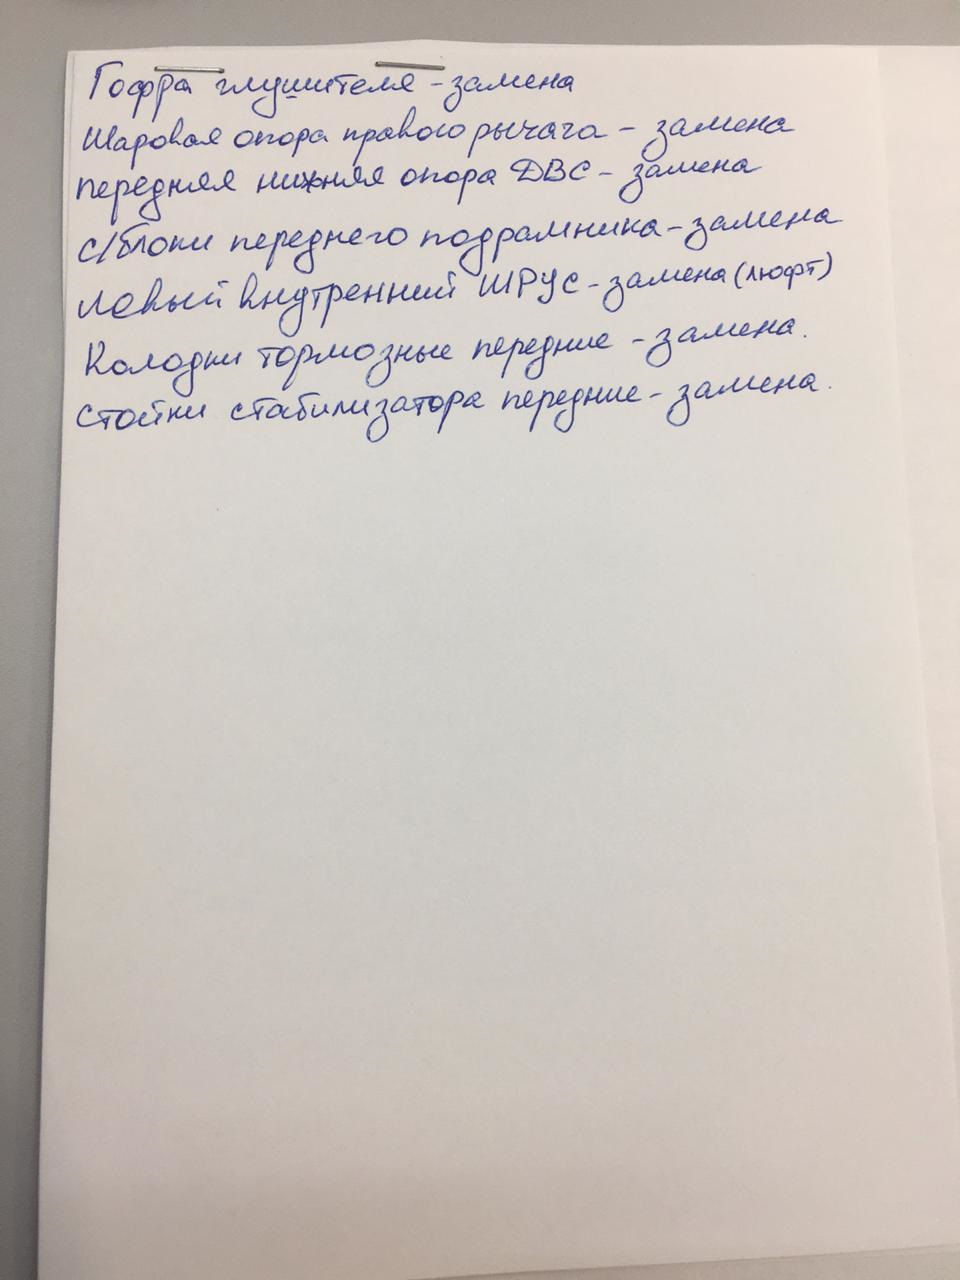 Гофра глушителя - замена
Шаровая опора правого рычага - замена
передняя нижняя опора ДВС - замена
с/блоки переднего подрамника - замена
левый внутренний ШРУС - замена (люфт)
Колодки тормозные передние - замена.
стойки стабилизатора передние - замена.